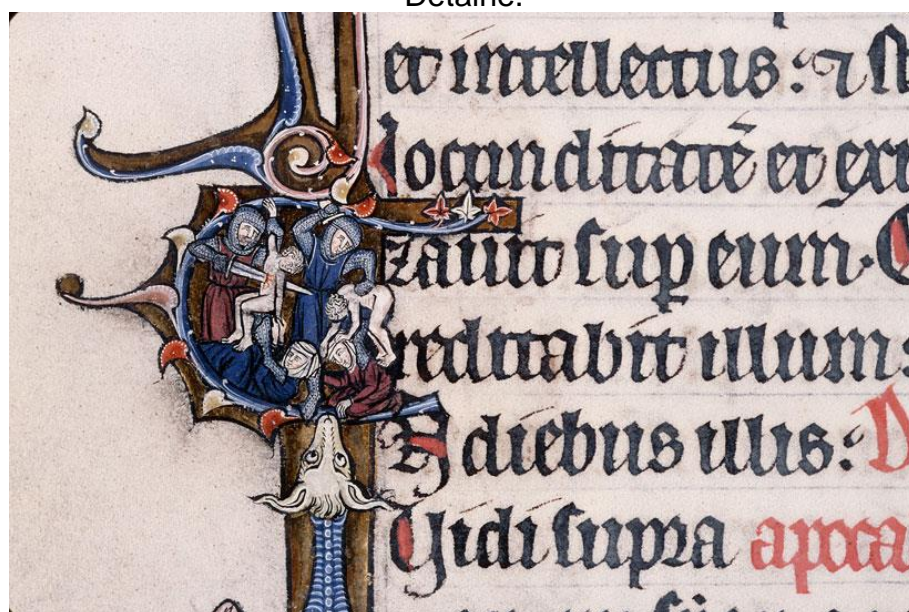 et intellectus : ⁊
Iocunditatē et
zauit sup eum .
reditabit illum :
A diebus illis :
Vidi supra apoca